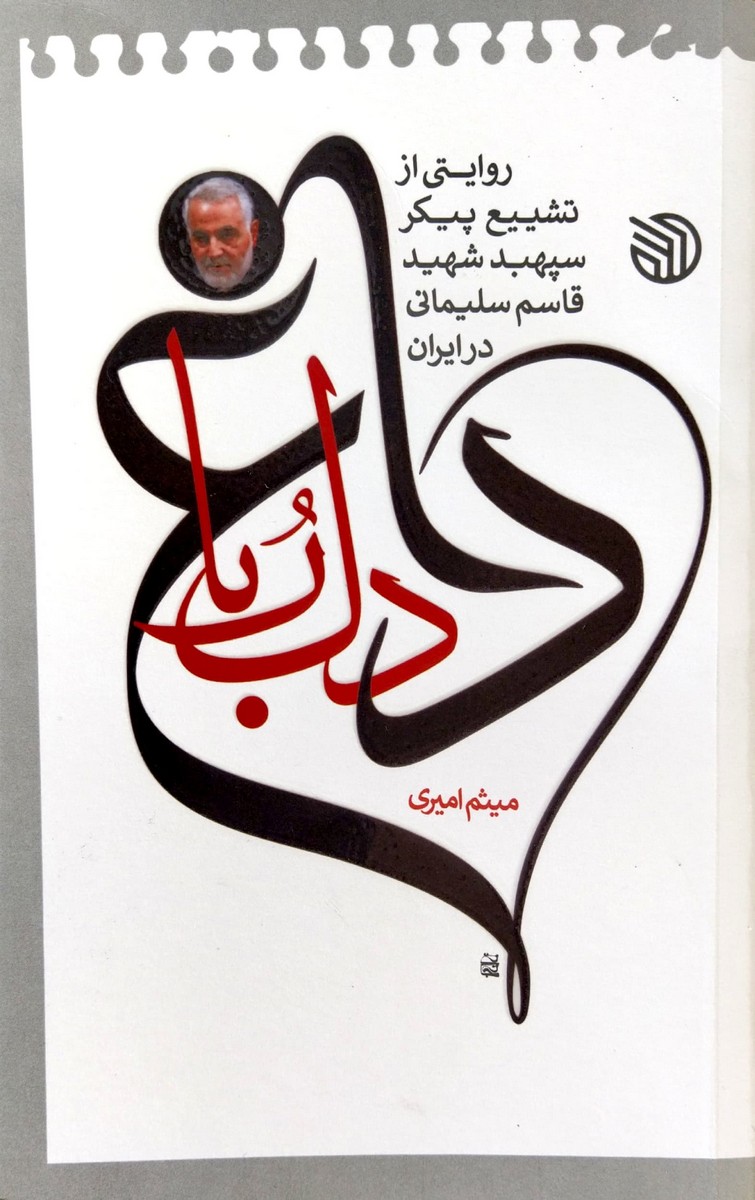 روایتی از
تشییع پیکر
سپهبد شهید
قاسم سلیمانی
در ایران
داغ
دلرُبا
میثم امیری